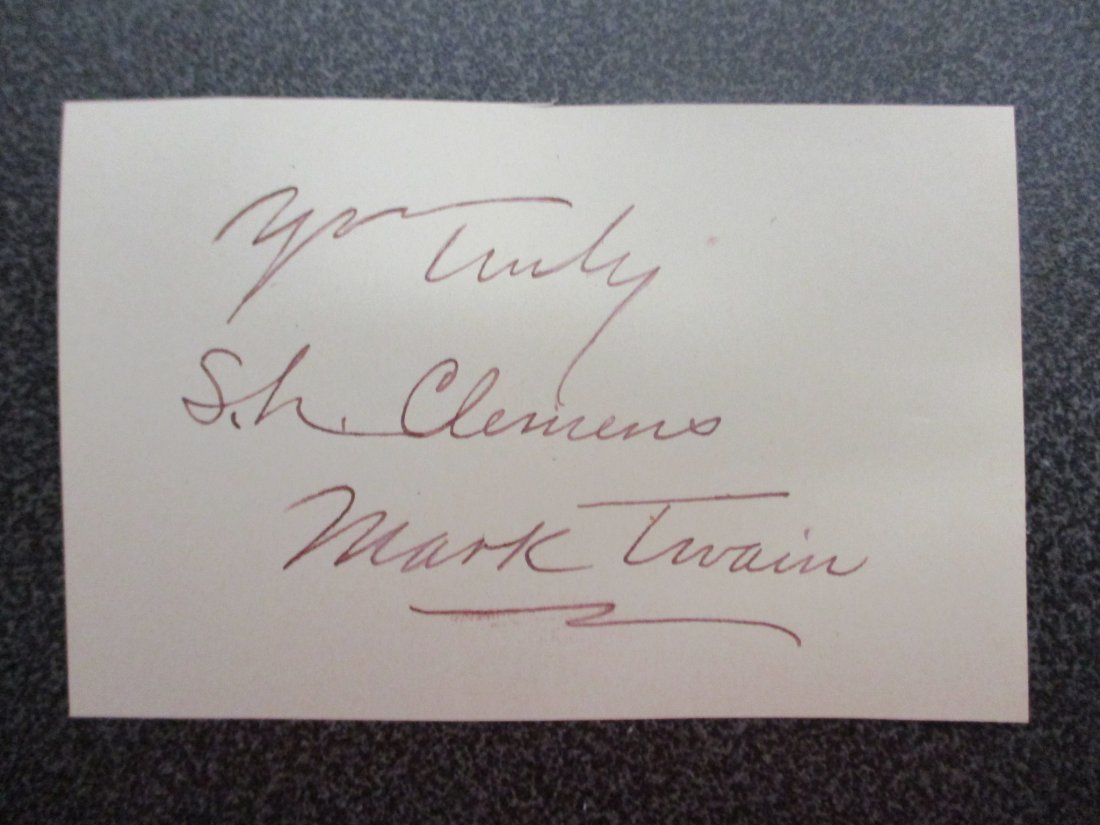 Yr Truly
S. L. Clemens
Mark Twain